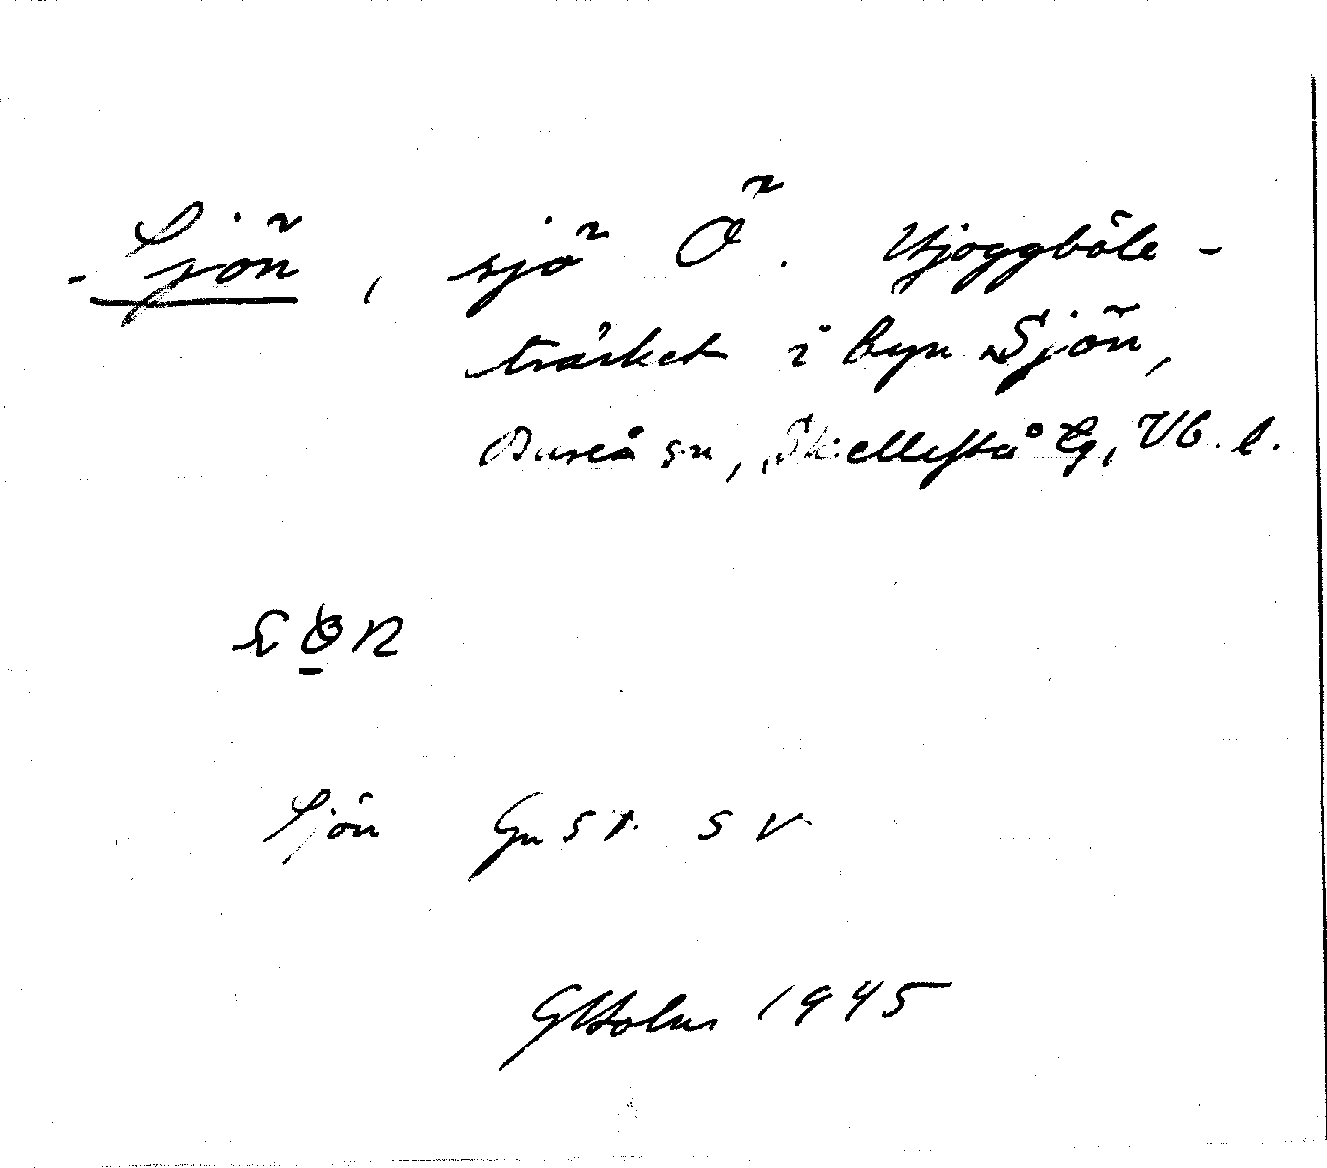 - Sjön, sjö Ö. Hjoggböle-
träsket i byn Sjön,
Bureå sn, Skellefteå tg, Vb. l.
Sjön Gen St. S V
GHolm 1945